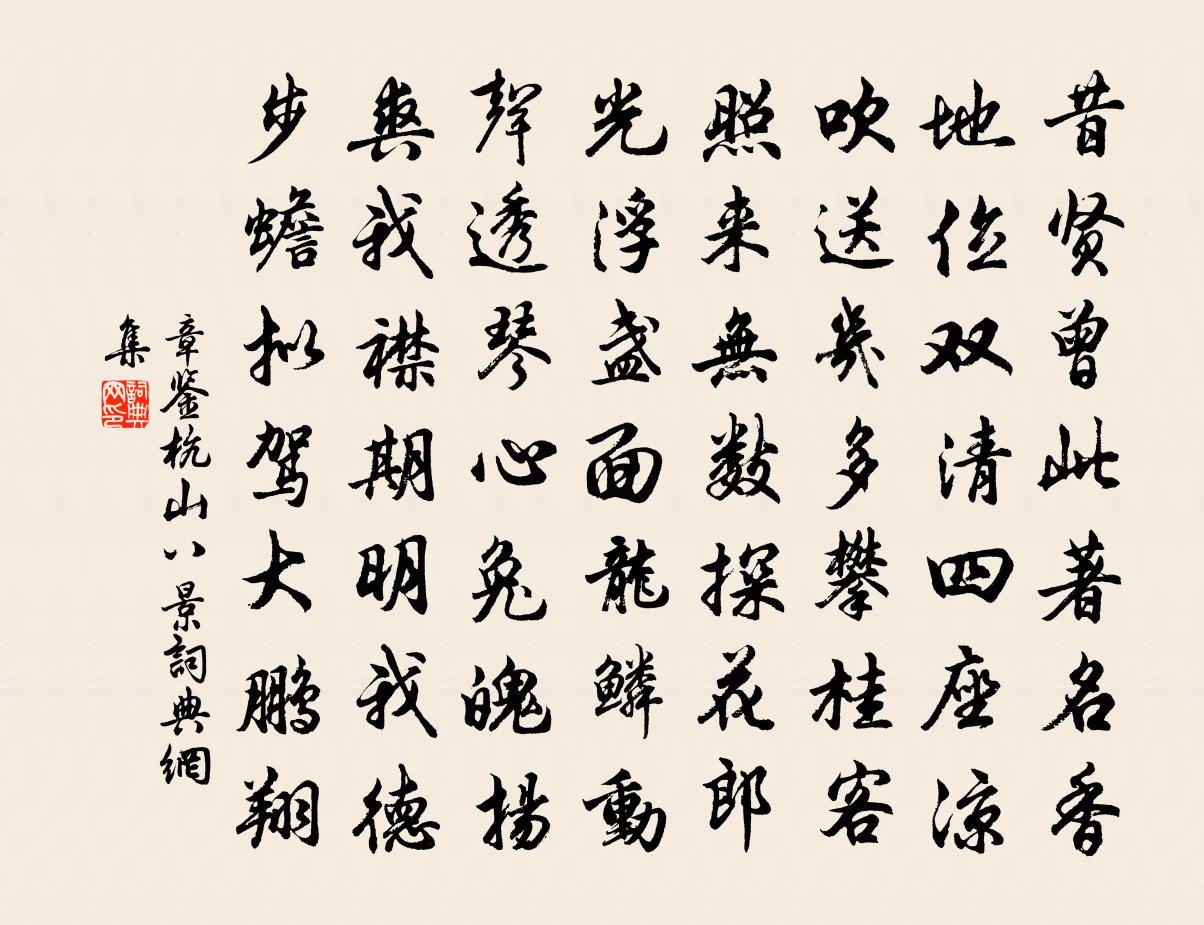 昔贤曾此著名香
地位双清四座凉
吹送几多攀桂客
照来無数探花郎
光浮盏面龍鳞動
聲透琴心兔魄揚
爽我襟期明我德
步蟾拟驾大鹏翔
章鉴杭山八景詞典網
集
詞典网印